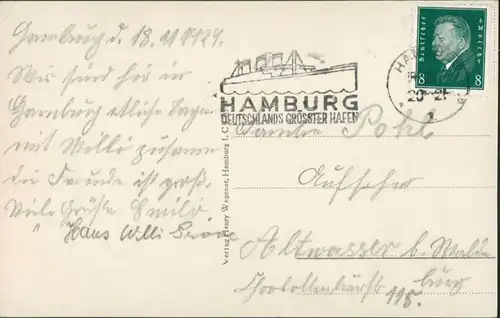 Hamburg d. 13.11 1929.
Wir sind hir in
Hamburg etliche Tage
mit Willi zusamen
die Freude ist groß.
Viele Grüße Emilie
" Hans Willi
HAMBURG
DEUTSCHLANDS GRÖSSTER HAFEN
Deutsches Reich
8 8
20-21
Verlag Henry Wegener, Hamburg 1. C.
Familie Pohl
Aufseher
Altwasser b. Walden
burg
Charlottenbrunnerstr
115.